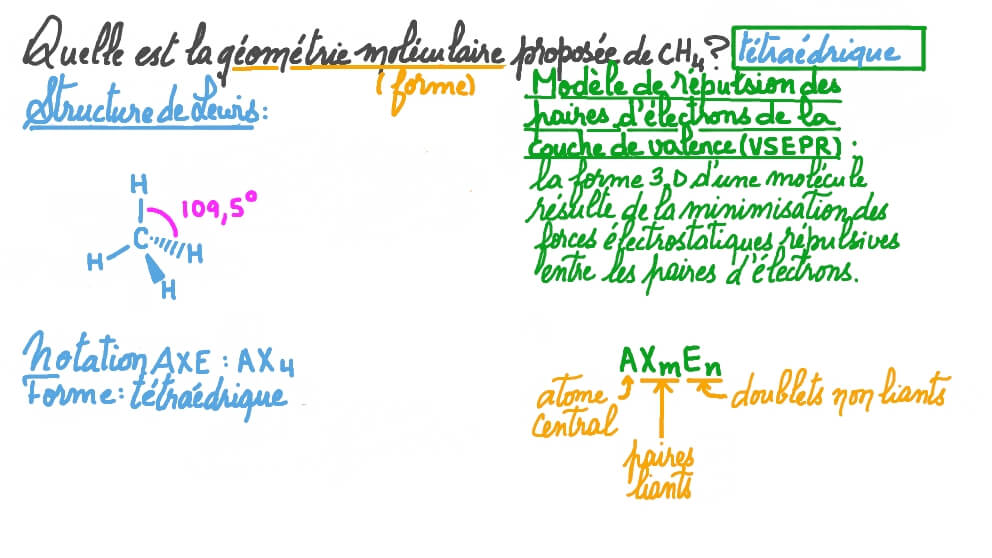 Quelle est la géométrie moléculaire proposée de CH4? tétraédrique
(forme)
Structure de Lewis:
Modèle de répulsion des
paires d'électrons de la
couche de valence (VSEPR) :
la forme 3.D d'une molécule
résulte de la minimisation des
forces électrostatiques répulsives
entre les paires d'électrons.
H
109,5°
C
H
H
H
Notation AXE : AX4
Forme: tétraédrique
AXmEn
atome
central
doublets non liants
paires
liants